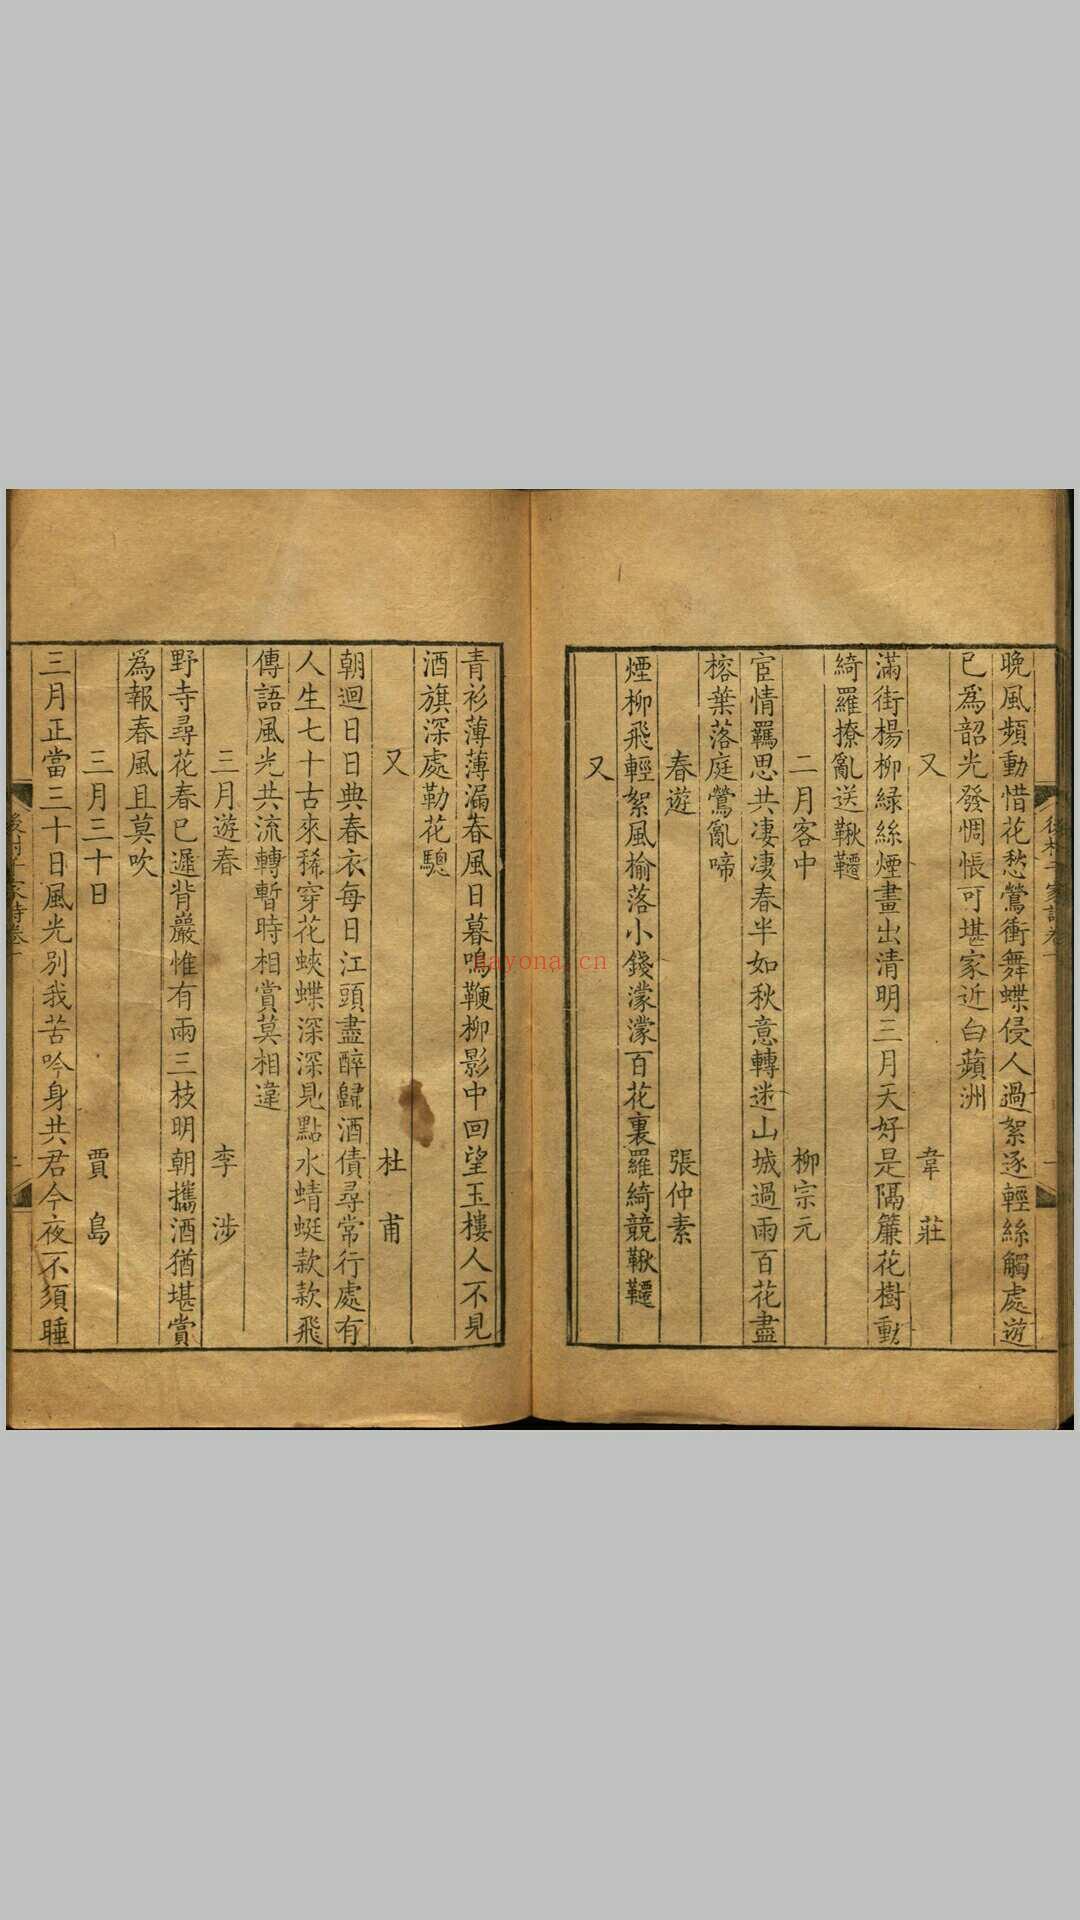 晚風頻動惜花愁鶯衝舞蝶侵人過絮逐輕絲觸處遊
已爲韶光發惆悵可堪家近白蘋洲
又　韋莊
滿街楊柳綠絲煙畫出清明三月天好是隔簾花樹動
綺羅撩亂送鞦韆
二月客中　柳宗元
宦情羈思共凄凄春半如秋意轉迷山城過雨百花盡
榕葉落庭鶯亂啼
春遊　張仲素
煙柳飛輕絮風榆落小錢濛濛百花裏羅綺競鞦韆
又
青衫薄薄漏春風日暮鳴鞭柳影中回望玉樓人不見
酒旗深處勒花驄
又　杜甫
朝迴日日典春衣每日江頭盡醉歸酒債尋常行處有
人生七十古來稀穿花蛺蝶深深見點水蜻蜓款款飛
傳語風光共流轉暫時相賞莫相違
三月遊春　李涉
野寺尋花春已遲背巖惟有兩三枝明朝攜酒猶堪賞
爲報春風且莫吹
三月三十日　賈島
三月正當三十日風光別我苦吟身共君今夜不須睡
nayona.cn